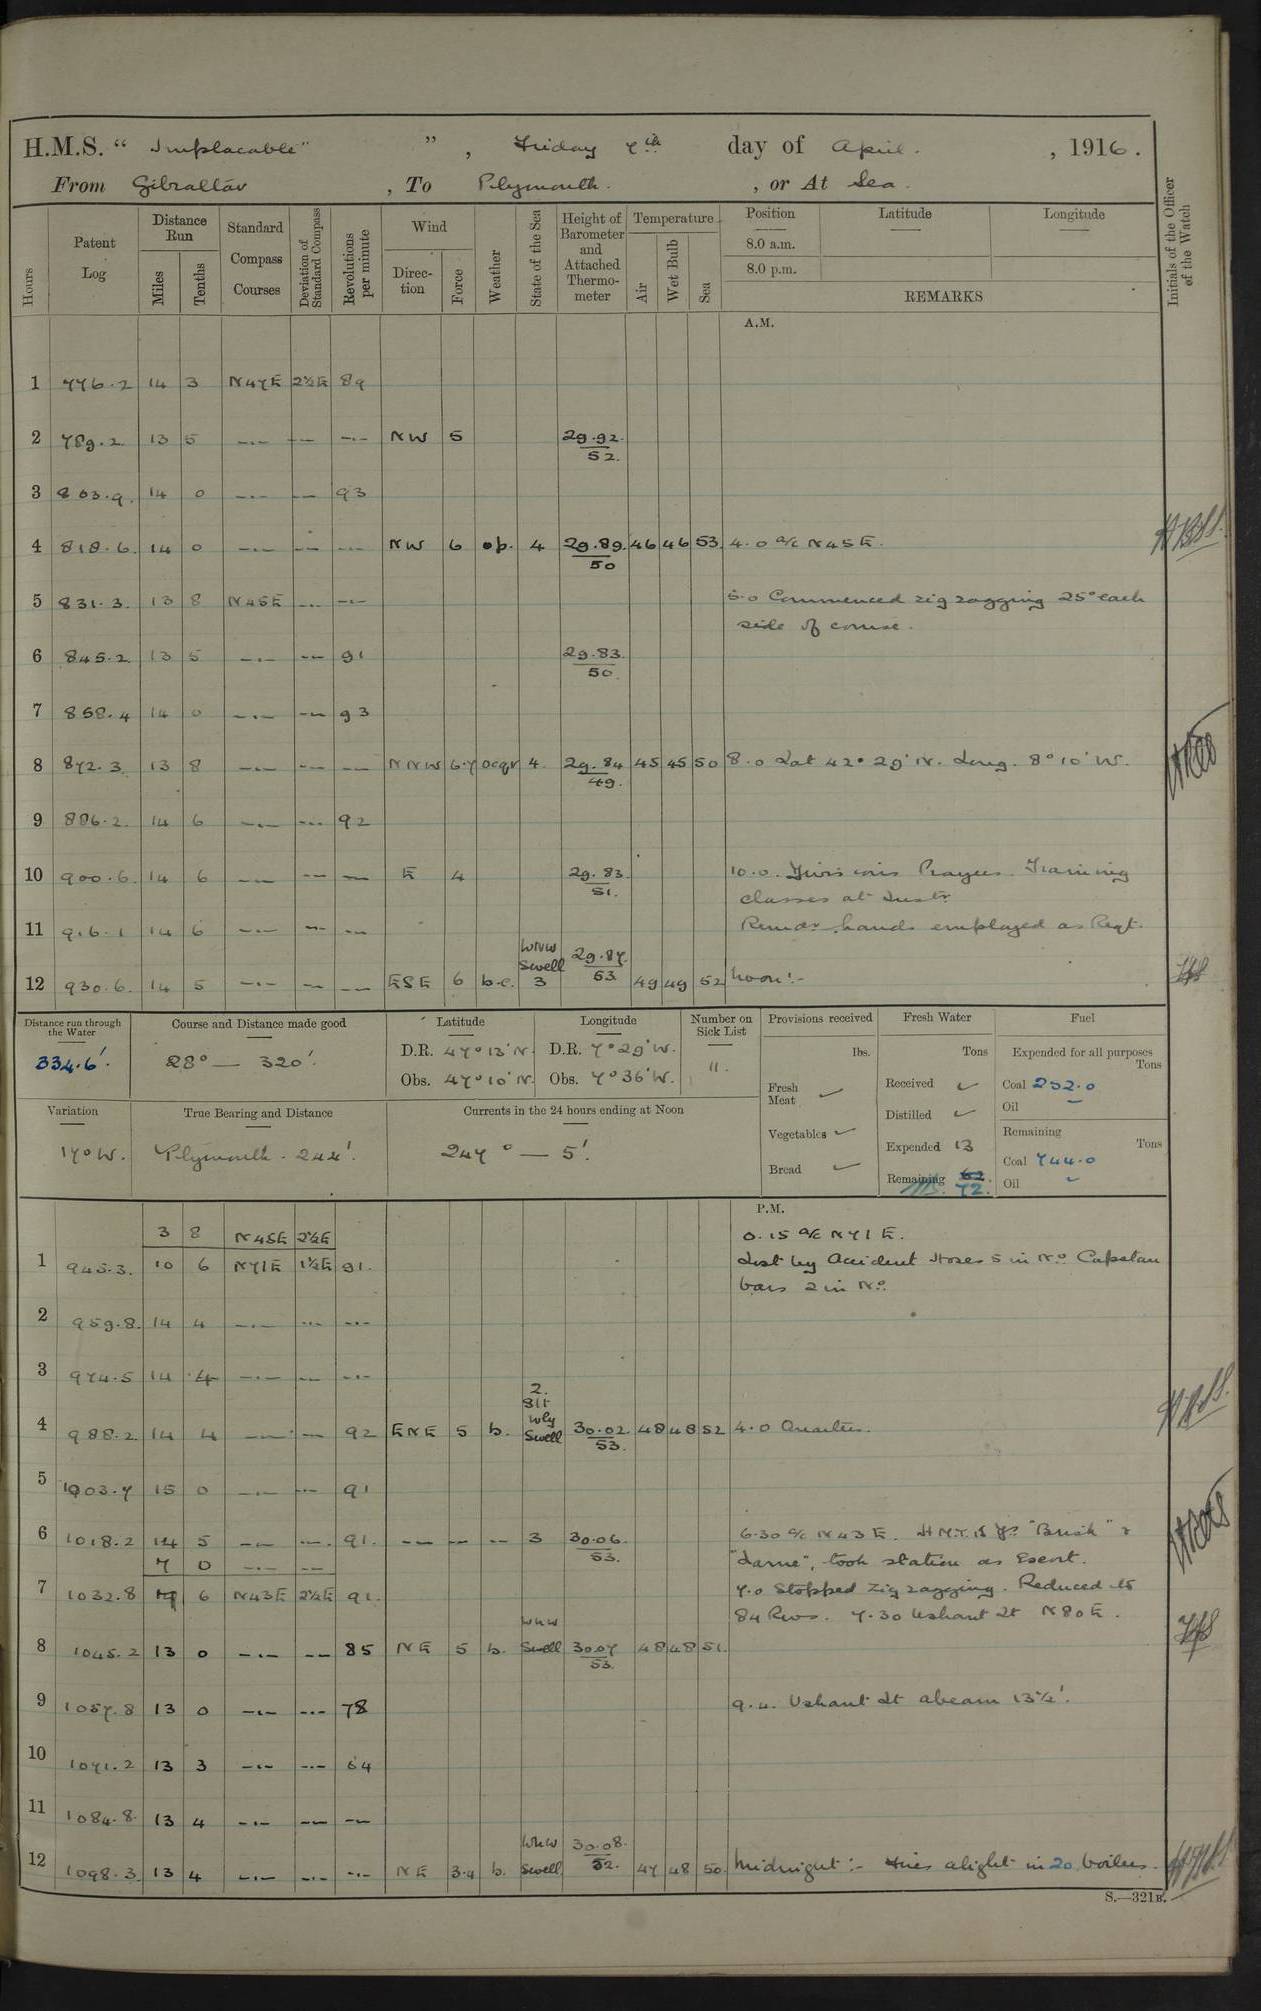 H.M.S. “ Implacable” ” , Friday 7th day of April. , 1916.
From Gibraltar , To Plymouth. , or At Sea.
Hours Patent Log Distance Run Miles Tenths Standard Compass Courses Deviation of Standard Compass Revolutions per minute Wind Direction Force Weather State of the Sea Height of Barometer and Attached Thermometer Temperature Air Wet Bulb Sea Position 8.0 a.m. 8.0 p.m. Latitude Longitude REMARKS Initials of the Officer of the Watch
A.M.
1 776.2 14 3 N47E 2½E 89
2 789.2 13 5 —.— — —.— NW 5 29.92. 52.
3 803.9. 14 0 —.— — 93
4 818.6. 14 0 —.— —.— —.— NW 6 op. 4 29.89. 50 46 46 53 4.0 a/c N45E.
5 831.3. 13 8 N45E —.— —.— 5.0 Commenced zig zagging 25° each
side of course.
6 845.2 13 5 —.— —.— 91 29.83. 50.
7 858.4 14 0 —.— —.— 93
8 872.3 13 8 —.— —.— — NNW 6.7 ocqr 4. 29.84 49. 45 45 50 8.0 Lat 42° 29' N. Long. 8° 10' W.
9 886.2. 14 6 —.— —.— 92
10 900.6. 14 6 —.— —.— — E 4 29.83. 51. 10.0. Divisions Prayers. Training
classes at Instr.
11 916.1 14 6 —.— —.— —.— Remdr. hands employed as Reqt.
12 930.6. 14 5 —.— — — ESE 6 b.c. WNW Swell 3 29.87. 53 49 49 52 Noon:-
Distance run through the Water 334.6'
Course and Distance made good 28° — 320'.
Latitude D.R. 47° 13' N. Obs. 47° 10' N.
Longitude D.R. 7° 29' W. Obs. 7° 36' W.
Number on Sick List 11.
Provisions received lbs. Fresh Meat Vegetables Bread
Fresh Water Tons Received Distilled Expended 13 Remaining 62. 72.
Fuel Expended for all purposes Tons Coal 252.0 Oil Remaining Tons Coal 744.0 Oil
Variation 17° W.
True Bearing and Distance Plymouth - 244'.
Currents in the 24 hours ending at Noon 247° — 5'.
P.M.
3 8 N45E 2½E 0.15 a/c N71E.
1 945.3. 10 6 N71E 1½E 91. Lost by Accident Hoses 5 in No. Capstan
bars 2 in No.
2 959.8. 14 4 —.— —.— —.—
3 974.5 14 4 —.— — —.—
4 988.2 14 4 —.— — 92 ENE 5 b. 2. Slt Wly Swell 30.02 53. 48 48 52 4.0 Quarters.
5 1003.7 15 0 —.— —.— 91
6 1018.2 14 5 —.— —.— 91. —.— —.— — 3 30.06. 53. 6.30 a/c N43E. "Brisk" &
7 0 —.— — "Larne", took station as Escort.
7 1032.8 6 N43E 2½E 91. 7.0 Stopped zig zagging. Reduced to
84 Revs. 7.30 Ushant Lt N80E.
8 1045.2 13 0 —.— —.— 85 NE 5 b. WNW Swell 30.07 53. 48 48 51.
9 1057.8 13 0 —.— —.— 78 9.4. Ushant Lt abeam 13¼'.
10 1071.2 13 3 —.— —.— 64
11 1084.8. 13 4 —.— —.— —.—
12 1098.3. 13 4 —.— —.— —.— NE 3.4 b. WNW Swell. 30.08. 52. 47 48 50. Midnight:- Fires alight in 20 boilers.
S.—321B.